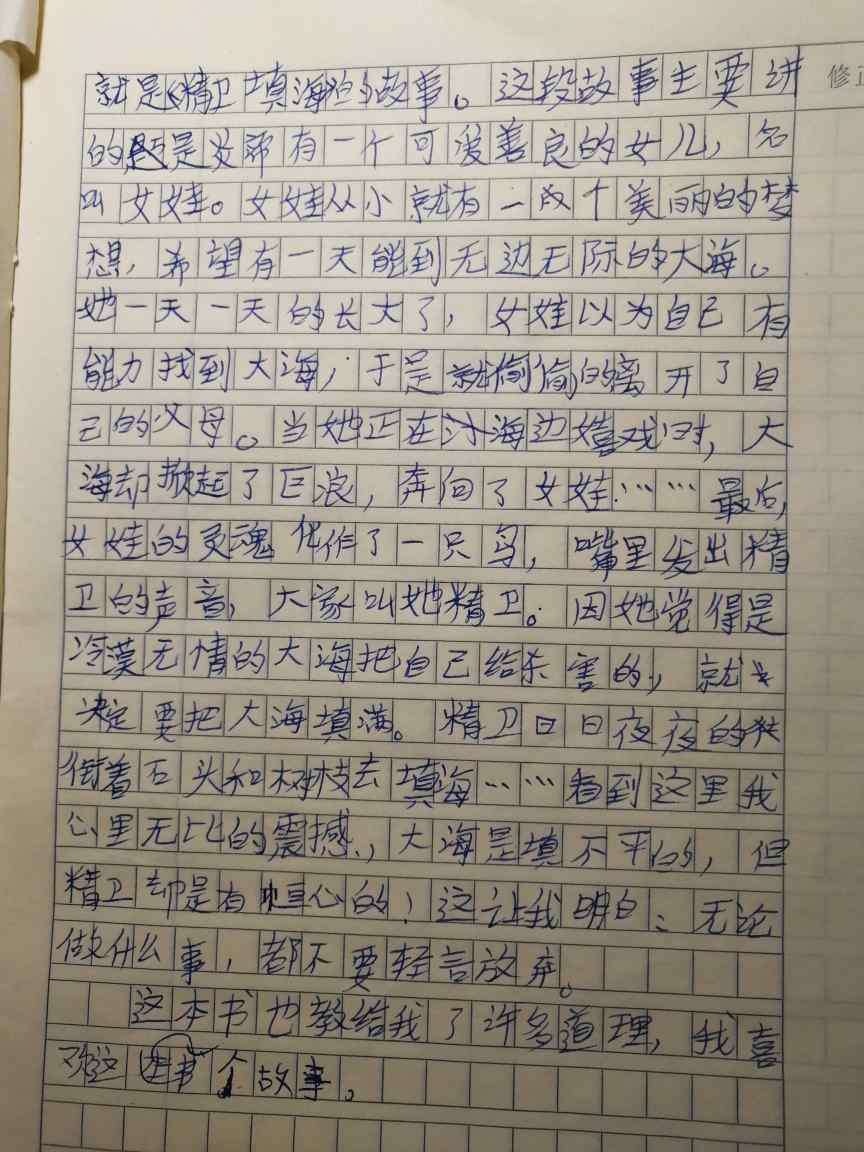 就是《精卫填海》的故事。这段故事主要讲 修正
的是炎帝有一个可爱善良的女儿，名
叫女娃。女娃从小就有一个美丽的梦
想，希望有一天能到无边无际的大海。
她一天一天的长大了，女娃以为自己有
能力找到大海，于是就偷偷的离开了自
己的父母。当她正在海边嬉戏时，大
海却掀起了巨浪，奔向了女娃……最后，
女娃的灵魂化作了一只鸟，嘴里发出精
卫的声音，大家叫她精卫。因她觉得是
冷漠无情的大海把自己给杀害的，就
决定要把大海填满。精卫日日夜夜的
衔着石头和树枝去填海……看到这里我
心里无比的震撼，大海是填不平的，但
精卫却是有恒心的！这让我明白：无论
做什么事，都不要轻言放弃。
这本书也教给我了许多道理，我喜
欢这个故事。